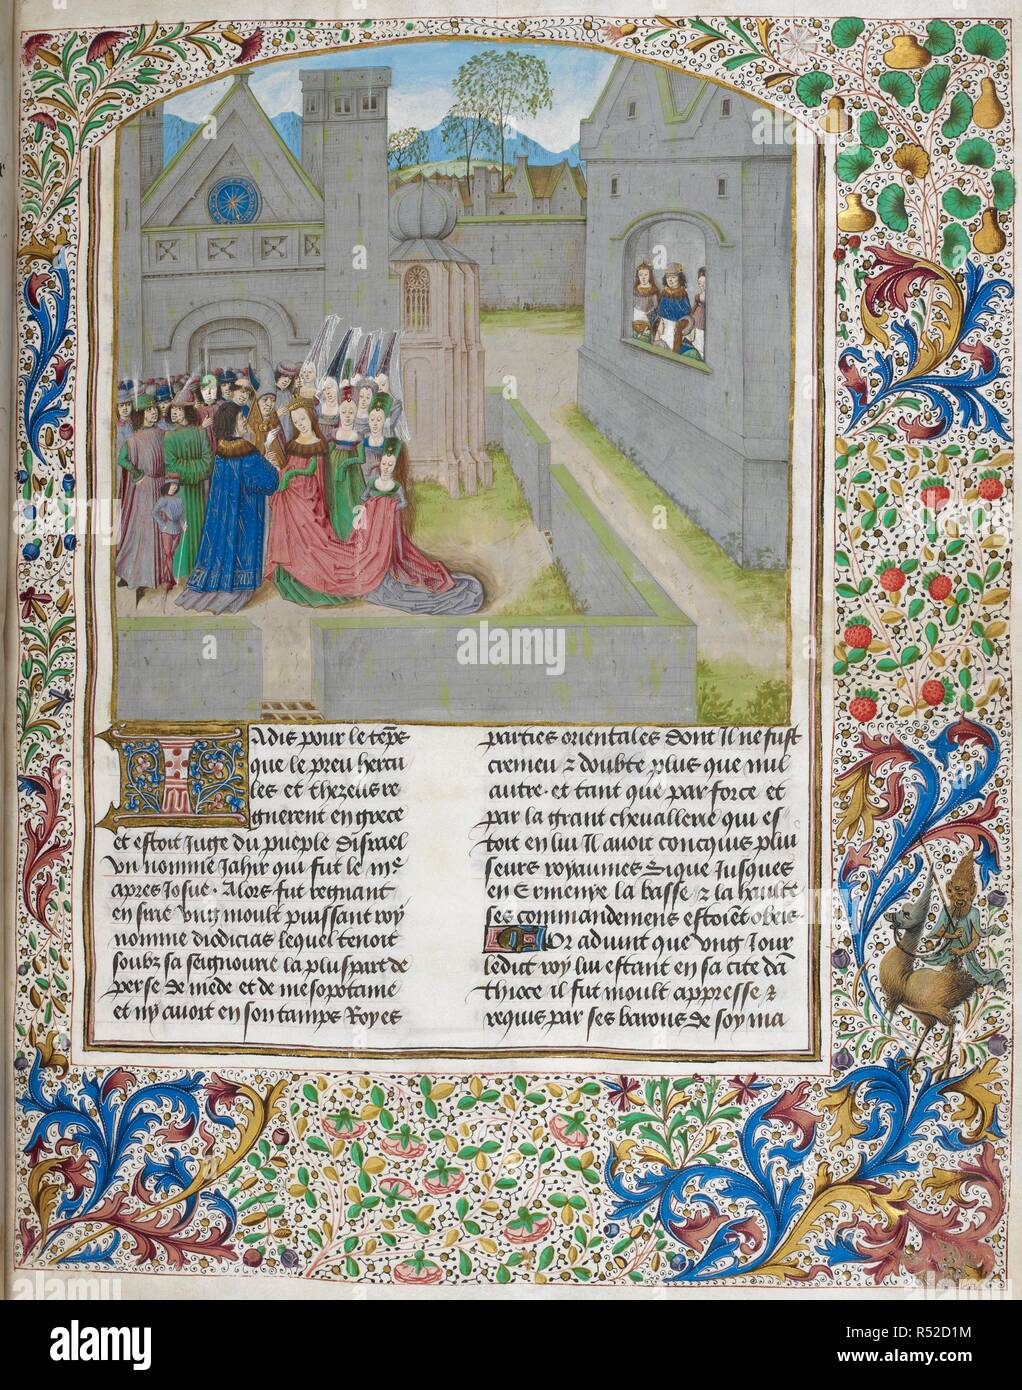 Iadis pour le tēps
que le preu hercu
les et thezeus re
gnerent en grece
et estoit Juge du pueple disrael
un nomme Jahir qui fut le me
apres Josue. Alors fut regnant
en sirie ung moult puissant roy
nomme diodicias lequel tenoit
soubz sa seignourie la pluspart de
perse de mede et de mesopotame
et ny avoit en son tamps Royes
parties orientales dont Il ne fust
cremeu & doubte plus que nul
autre. et tant que par force et
par la grant chevallerie qui es
toit en lui Il avoit concquis plui
seurs royaumes Sique Jusques
en Ermenye la basse & la haulte
ses commandemens estoiēt obeis.
Or advint que ung Jour
ledit roy lui estant en sa cite dā
thioce il fut moult appresse &
requis par ses barons de soy ma
alamy stock photo
alamy
Image ID: R52D1M
www.alamy.com